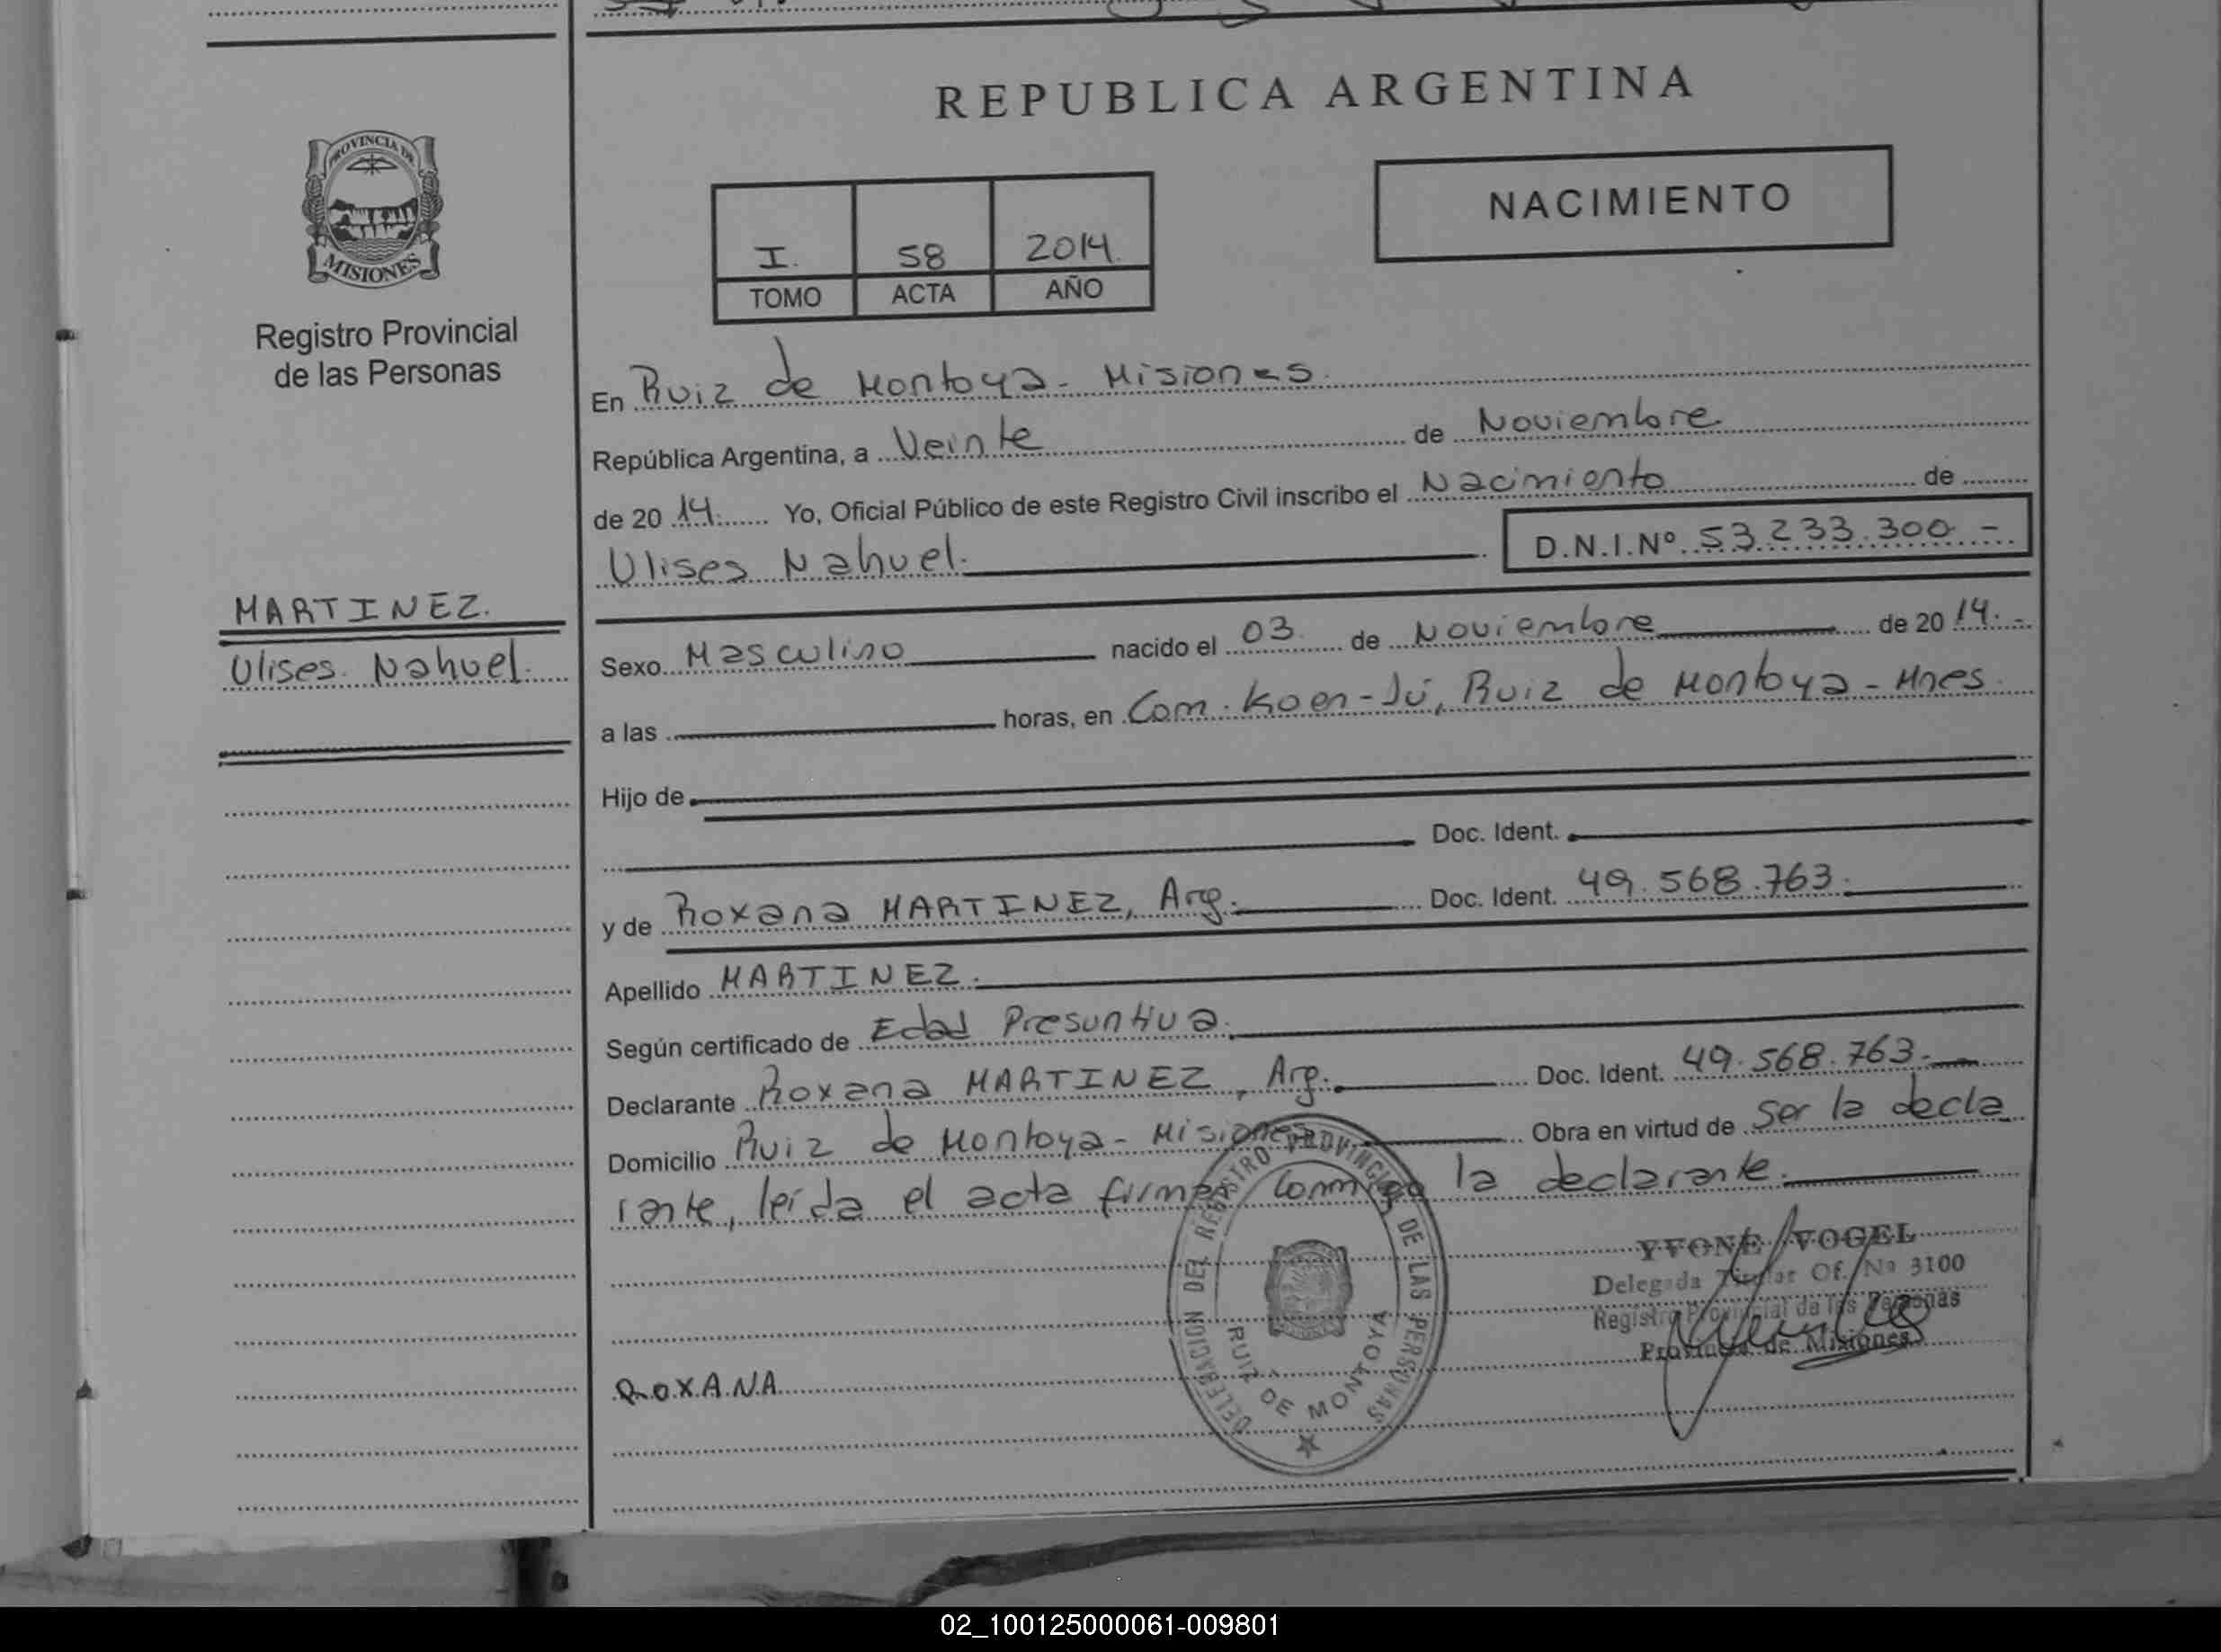 REPUBLICA ARGENTINA
PROVINCIA DE
MISIONES
Registro Provincial
de las Personas
NACIMIENTO
I. 58 2014.
TOMO ACTA AÑO
En Ruiz de Montoya - Misiones.
República Argentina, a Veinte de Noviembre
de 20 14. Yo, Oficial Público de este Registro Civil inscribo el Nacimiento de
Ulises Nahuel. D.N.I.Nº 53.233.300 -
MARTINEZ.
Ulises Nahuel.
Sexo Masculino nacido el 03 de Noviembre de 20 14. -
a las horas, en Com. Koen-Jú, Ruiz de Montoya - Mnes
Hijo de
Doc. Ident.
y de Roxana MARTINEZ, Arg. Doc. Ident. 49.568.763.
Apellido MARTINEZ.
Según certificado de Edad Presuntiva.
Declarante Roxana MARTINEZ, Arg. Doc. Ident. 49.568.763. -
Domicilio Ruiz de Montoya - Misiones Obra en virtud de Ser la decla
rante, leída el acta firma conmigo la declarante.
DELEGACION DEL REGISTRO PROVINCIAL DE LAS PERSONAS
RUIZ DE MONTOYA
YVONE VOGEL
Delegada Titular Of. Nº 3100
Registro Provincial de las Personas
Provincia de Misiones
ROXANA
02_100125000061-009801